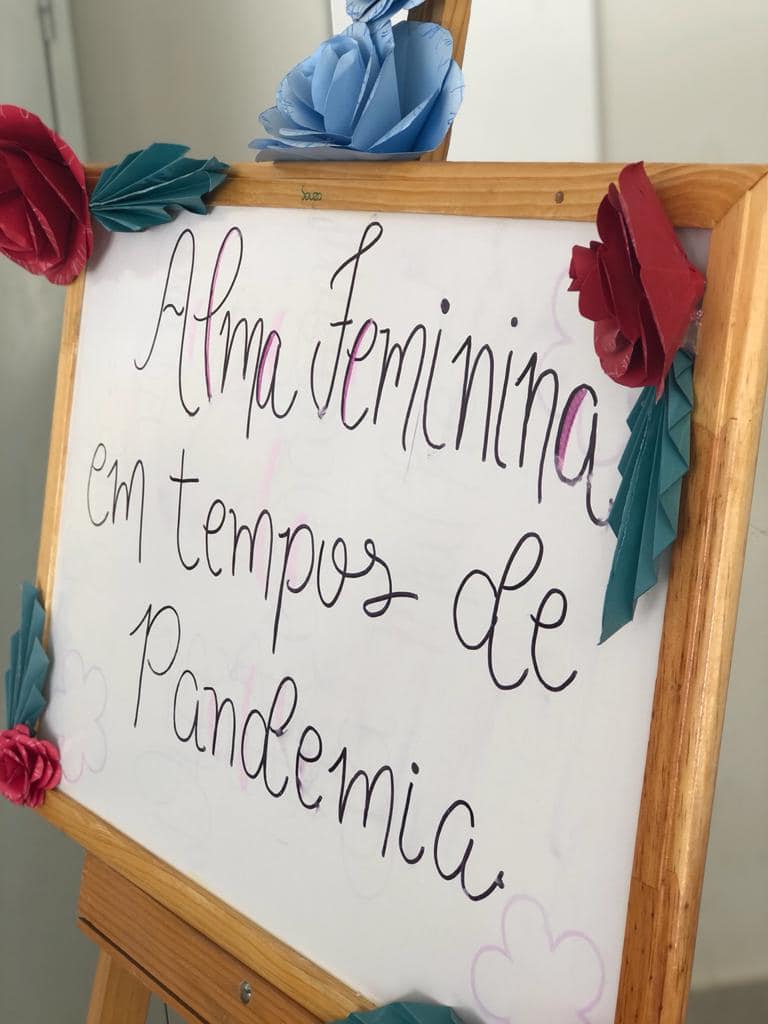 Souza
Alma Feminina
em tempos de
Pandemia